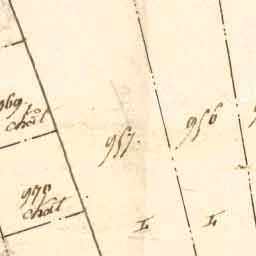 969
chât
970
chât
957
956
L
L